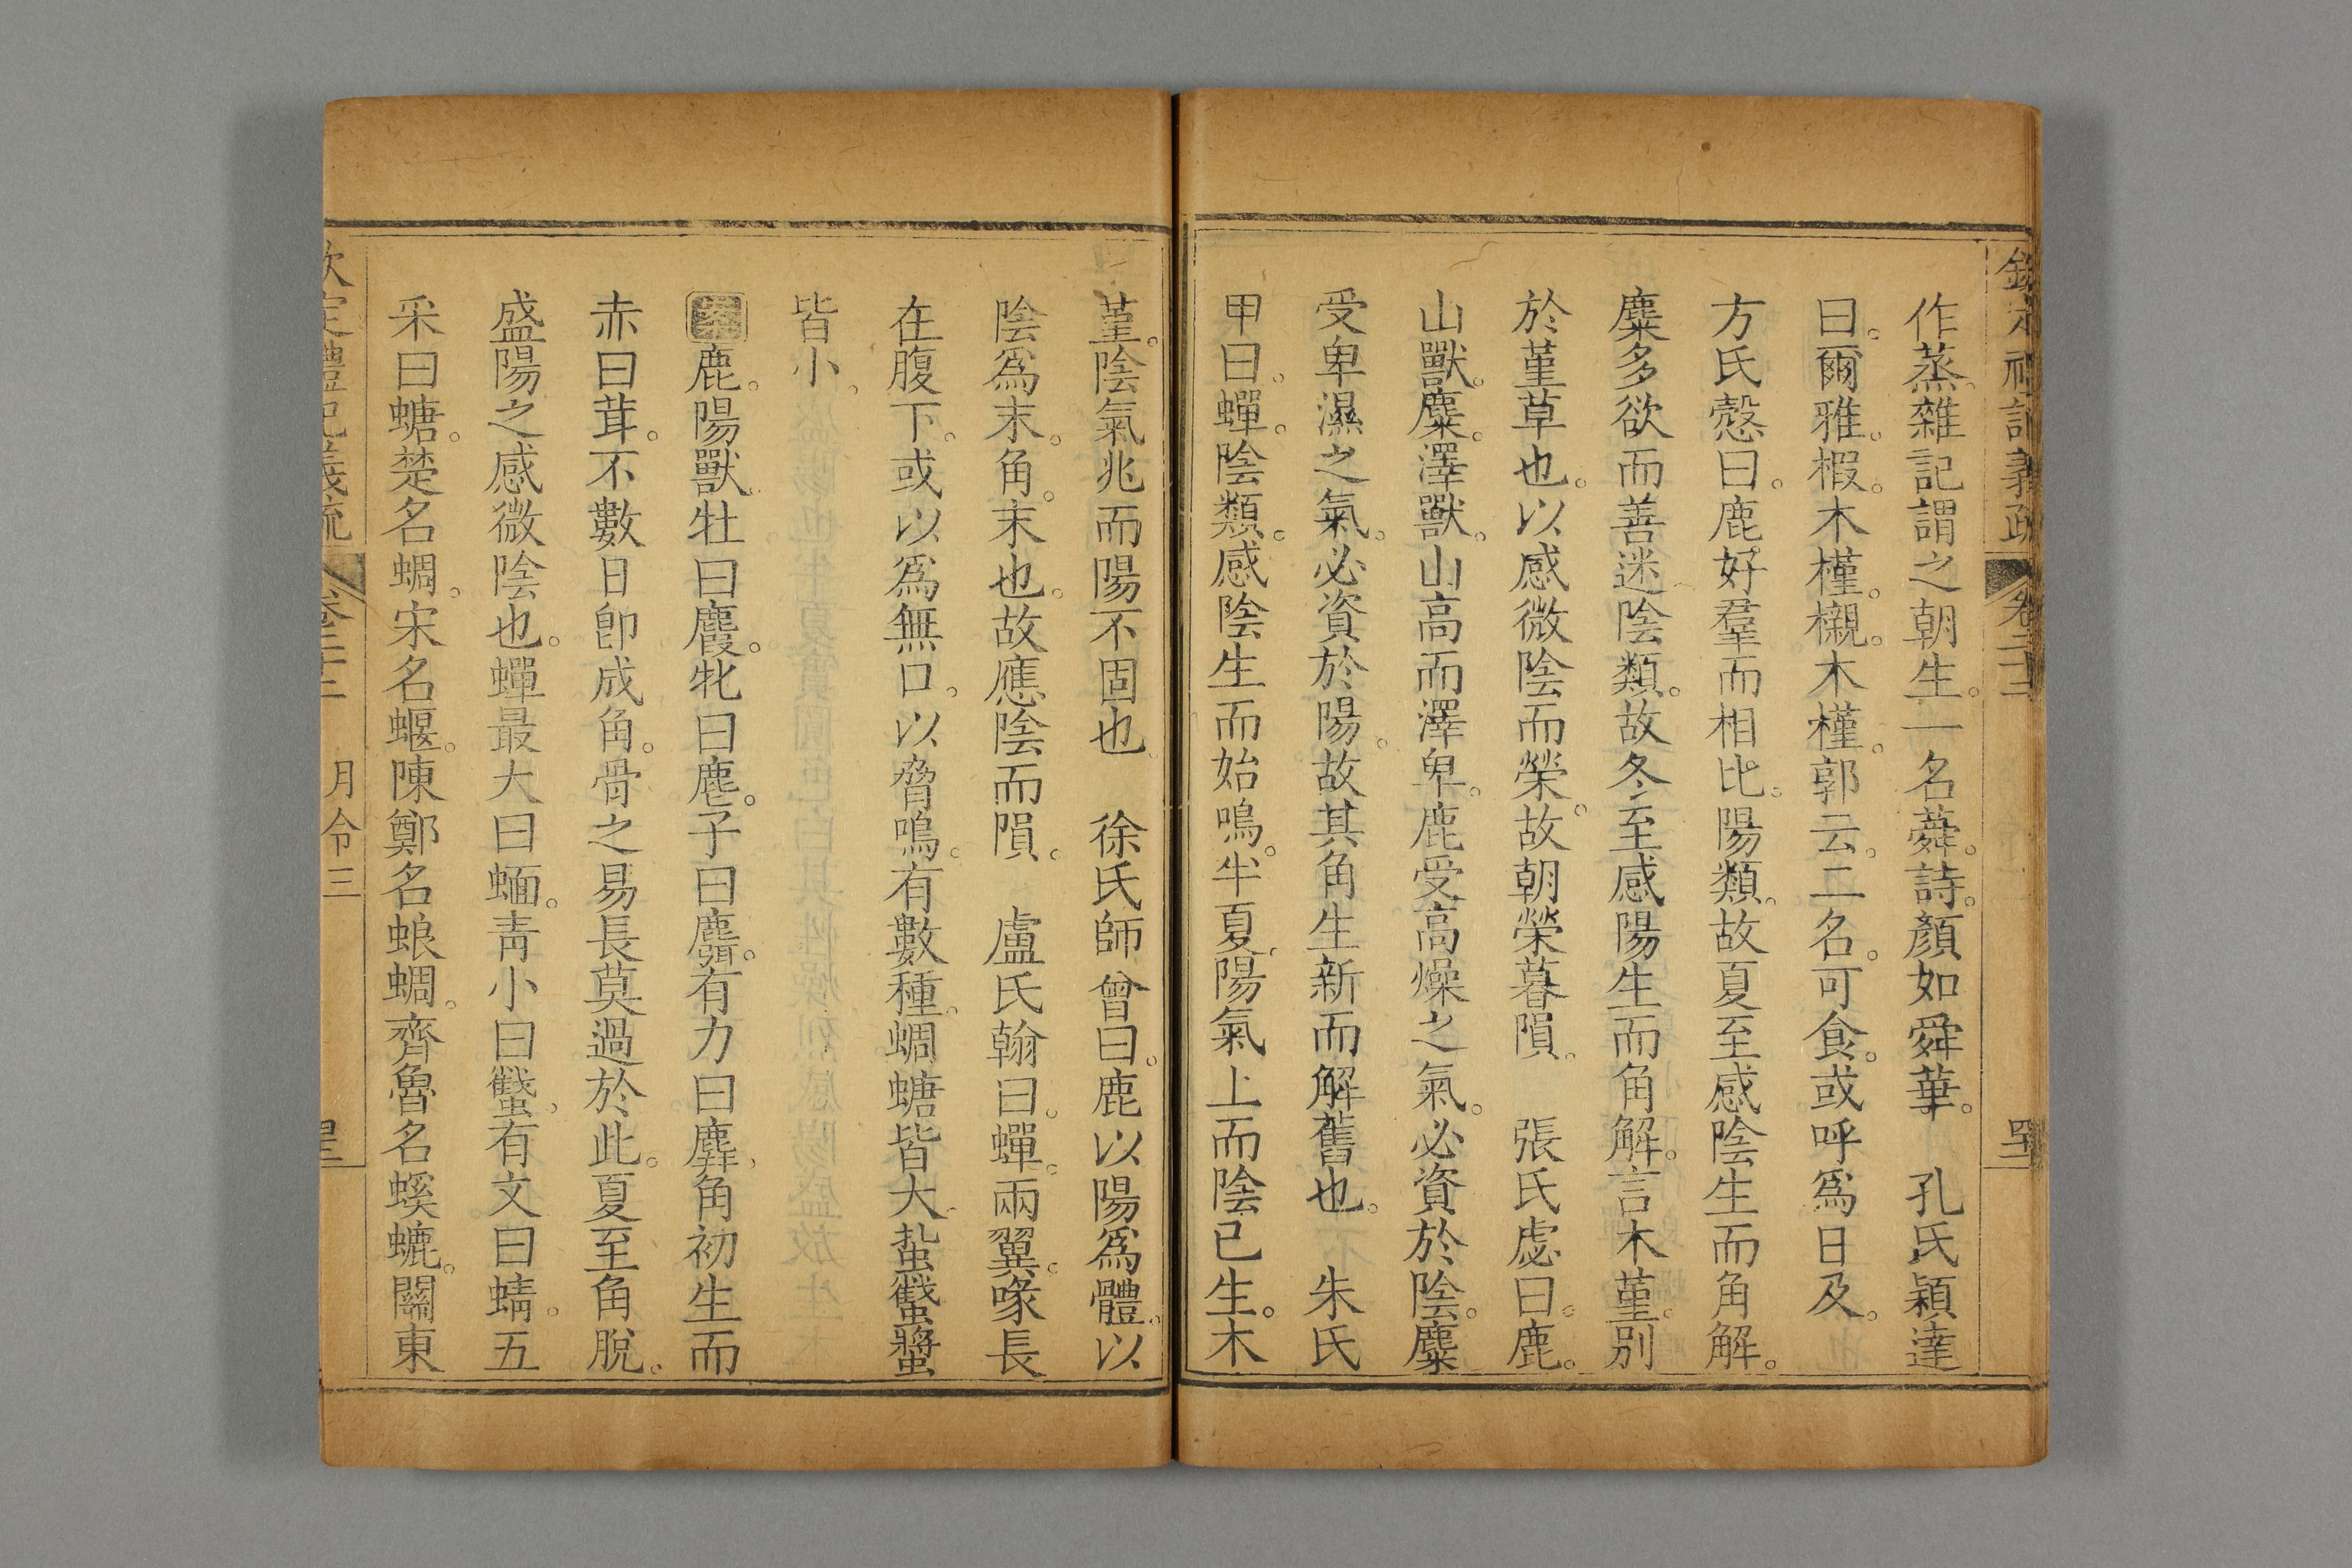 欽定禮記義疏 卷二十二
作蒸。雜記謂之朝生。一名蕣。詩。顏如舜華。 孔氏穎達
曰。爾雅。椵。木槿。櫬。木槿。郭云。二名。可食。或呼爲日及。
方氏慤曰。鹿好羣而相比。陽類。故夏至感陰生而角解。
麋多欲而善迷。陰類。故冬至感陽生而角解。言木堇。别
於堇草也。以感微陰而榮。故朝榮暮隕。 張氏虙曰。鹿。
山獸。麋。澤獸。山高而澤卑。鹿受高燥之氣。必資於陰。麋
受卑濕之氣。必資於陽。故其角生新而解舊也。 朱氏
甲曰。蟬。陰類。感陰生而始鳴。半夏。陽氣上而陰已生。木
堇。陰氣兆而陽不固也 徐氏師曾曰。鹿以陽爲體。以
陰爲末。角。末也。故應陰而隕。 盧氏翰曰。蟬。兩翼。喙長
在腹下。或以爲無口。以脅鳴。有數種。蜩螗皆大。蟄蠽螿
皆小。
鹿。陽獸。牡曰麚。牝曰麀。子曰麛。有力曰麉。角初生而
赤曰茸。不數日卽成角。骨之易長莫過於此。夏至角脫。
盛陽之感微陰也。蟬最大曰蝒。青小曰蠽。有文曰蜻。五
采曰螗。楚名蜩。宋名蝘。陳鄭名蜋蜩。齊魯名螇螰。關東
欽定禮記義疏 卷二十二 月令三